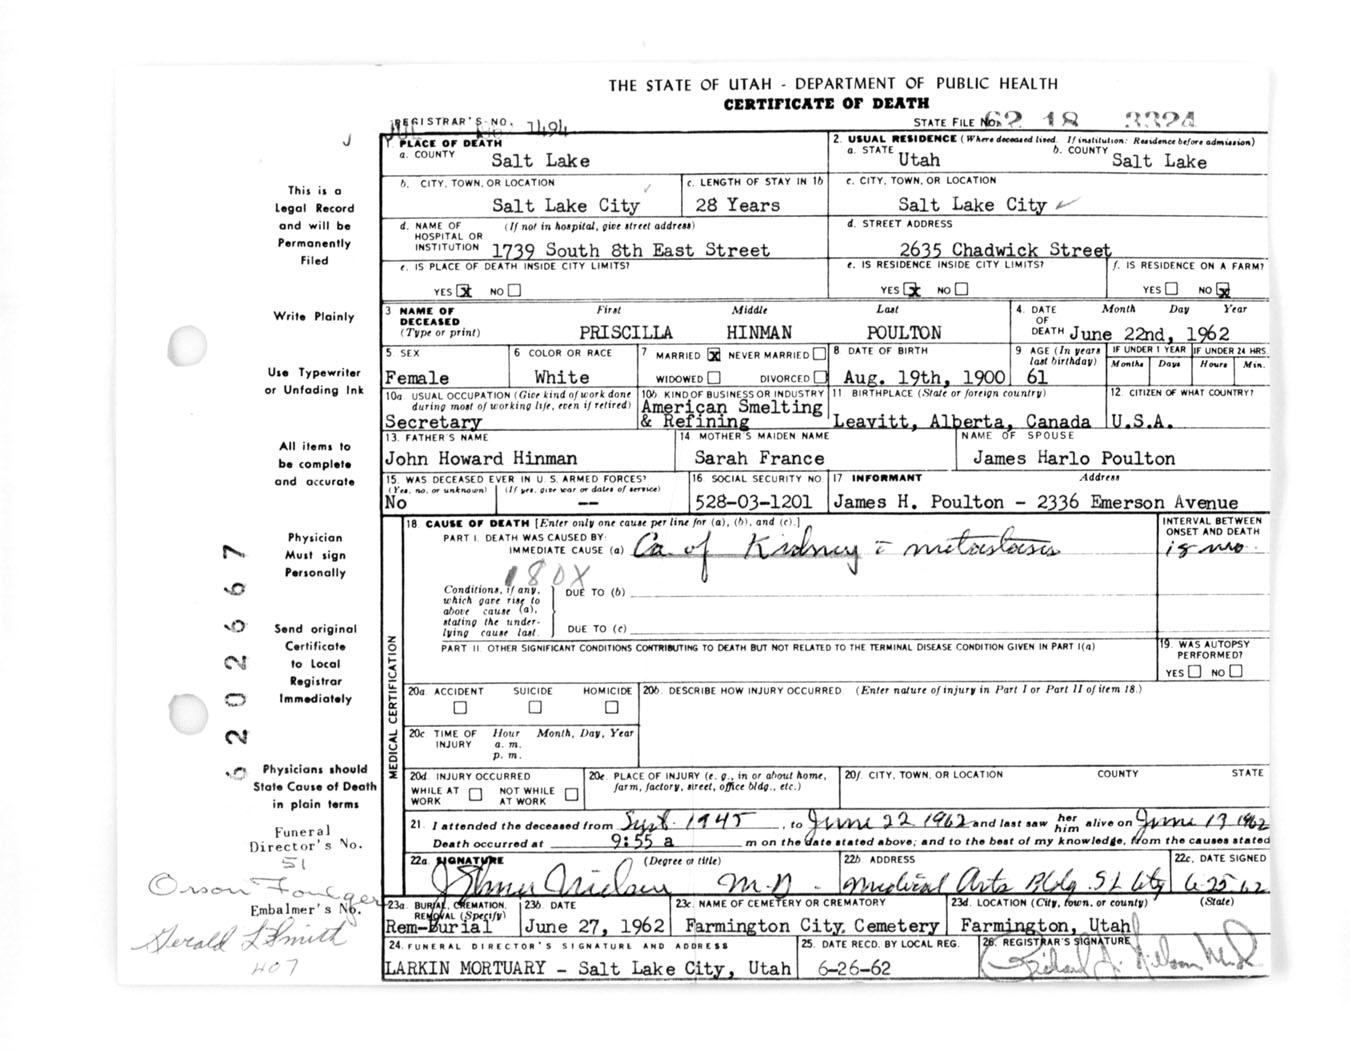 THE STATE OF UTAH - DEPARTMENT OF PUBLIC HEALTH
CERTIFICATE OF DEATH
REGISTRAR'S NO. 1494
STATE FILE NO. 62 18 3324
J
This is a
Legal Record
and will be
Permanently
Filed
Write Plainly
Use Typewriter
or Unfading Ink
All items to
be complete
and accurate
Physician
Must sign
Personally
Send original
Certificate
to Local
Registrar
Immediately
Physicians should
State Cause of Death
in plain terms
Funeral
Director's No.
51
Orson Foulger
Embalmer's No.
Gerald L Smith
407
1. PLACE OF DEATH
a. COUNTY Salt Lake
2. USUAL RESIDENCE (Where deceased lived. If institution: Residence before admission)
a. STATE Utah b. COUNTY Salt Lake
b. CITY, TOWN, OR LOCATION Salt Lake City
c. LENGTH OF STAY IN 1b 28 Years
c. CITY, TOWN, OR LOCATION Salt Lake City
d. NAME OF HOSPITAL OR INSTITUTION (If not in hospital, give street address) 1739 South 8th East Street
d. STREET ADDRESS 2635 Chadwick Street
e. IS PLACE OF DEATH INSIDE CITY LIMITS? YES x NO
e. IS RESIDENCE INSIDE CITY LIMITS? YES x NO
f. IS RESIDENCE ON A FARM? YES NO x
3 NAME OF DECEASED (Type or print) First Middle Last
PRISCILLA HINMAN POULTON
4. DATE OF DEATH Month Day Year June 22nd, 1962
5. SEX Female
6 COLOR OR RACE White
7 MARRIED x NEVER MARRIED WIDOWED DIVORCED
8 DATE OF BIRTH Aug. 19th, 1900
9 AGE (In years last birthday) 61
IF UNDER 1 YEAR Months Days
IF UNDER 24 HRS Hours Min.
10a. USUAL OCCUPATION (Give kind of work done during most of working life, even if retired) Secretary
10b. KIND OF BUSINESS OR INDUSTRY American Smelting & Refining
11 BIRTHPLACE (State or foreign country) Leavitt, Alberta, Canada
12. CITIZEN OF WHAT COUNTRY? U.S.A.
13. FATHER'S NAME John Howard Hinman
14 MOTHER'S MAIDEN NAME Sarah France
NAME OF SPOUSE James Harlo Poulton
15. WAS DECEASED EVER IN U.S. ARMED FORCES? (Yes, no, or unknown) (If yes, give war or dates of service)
No --
16 SOCIAL SECURITY NO. 528-03-1201
17 INFORMANT Address James H. Poulton - 2336 Emerson Avenue
MEDICAL CERTIFICATION
18. CAUSE OF DEATH [Enter only one cause per line for (a), (b), and (c).]
INTERVAL BETWEEN ONSET AND DEATH
PART I. DEATH WAS CAUSED BY:
IMMEDIATE CAUSE (a) Ca of Kidney c metastasis 18 mo.
180X
Conditions, if any, which gave rise to above cause (a), stating the underlying cause last.
DUE TO (b)
DUE TO (c)
PART II. OTHER SIGNIFICANT CONDITIONS CONTRIBUTING TO DEATH BUT NOT RELATED TO THE TERMINAL DISEASE CONDITION GIVEN IN PART I(a)
19. WAS AUTOPSY PERFORMED? YES NO
20a. ACCIDENT SUICIDE HOMICIDE
20b. DESCRIBE HOW INJURY OCCURRED (Enter nature of injury in Part I or Part II of item 18.)
20c TIME OF INJURY Hour a. m. p. m. Month, Day, Year
20d. INJURY OCCURRED WHILE AT WORK NOT WHILE AT WORK
20e. PLACE OF INJURY (e. g., in or about home, farm, factory, street, office bldg., etc.)
20f. CITY, TOWN, OR LOCATION COUNTY STATE
21. I attended the deceased from Sept. 1945, to June 22 1962 and last saw her him alive on June 19 1962
Death occurred at 9:55 a m on the date stated above; and to the best of my knowledge, from the causes stated
22a. SIGNATURE (Degree or title) J Elmer Nielsen M.D.
22b ADDRESS Medical Arts Bldg. S L City
22c. DATE SIGNED 6-25-62
23a. BURIAL, CREMATION, REMOVAL (Specify) Rem-Burial
23b. DATE June 27, 1962
23c. NAME OF CEMETERY OR CREMATORY Farmington City Cemetery
23d. LOCATION (City, town, or county) (State) Farmington, Utah
24. FUNERAL DIRECTOR'S SIGNATURE AND ADDRESS LARKIN MORTUARY - Salt Lake City, Utah
25. DATE RECD. BY LOCAL REG. 6-26-62
26. REGISTRAR'S SIGNATURE